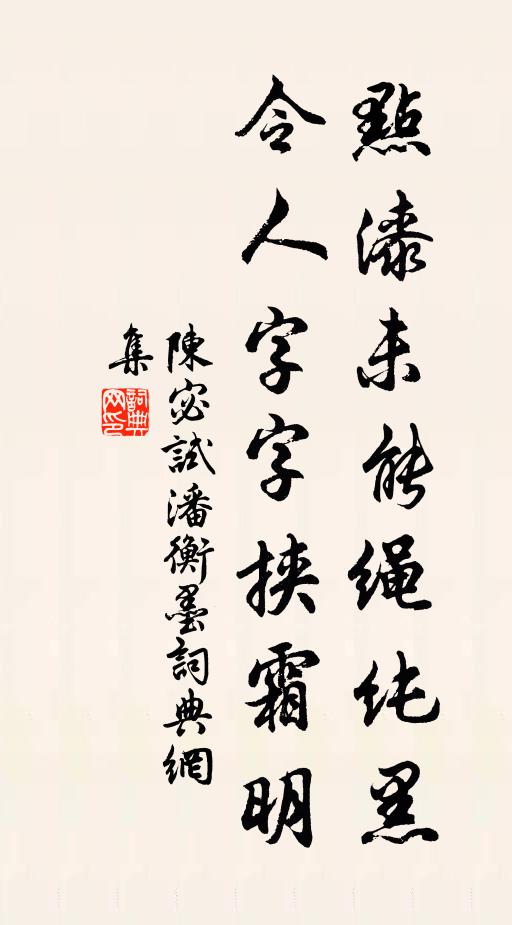 點漆未能繩純黑
令人字字挾霜明
陳宓試潘衡墨詞典網
集
詞典网印